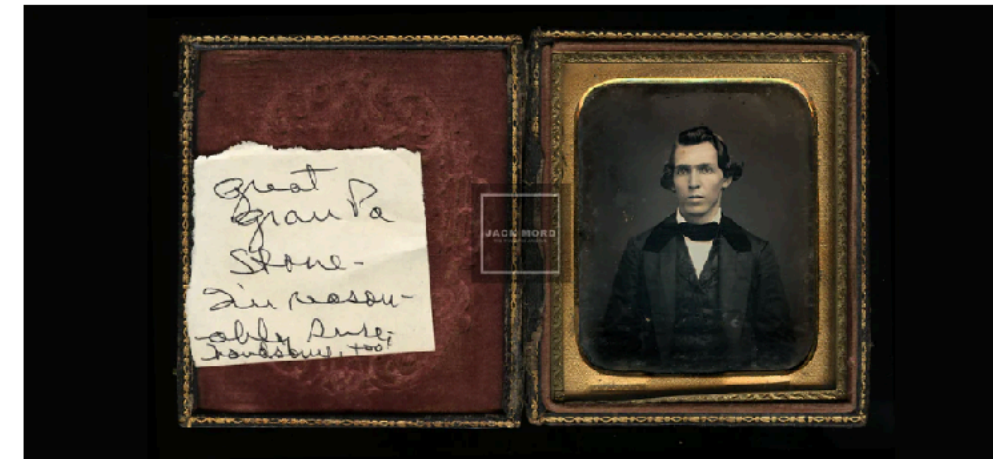 great
gran Pa
Stone-
I'm reason-
ably sure,
handsome, too!
JACK MORD